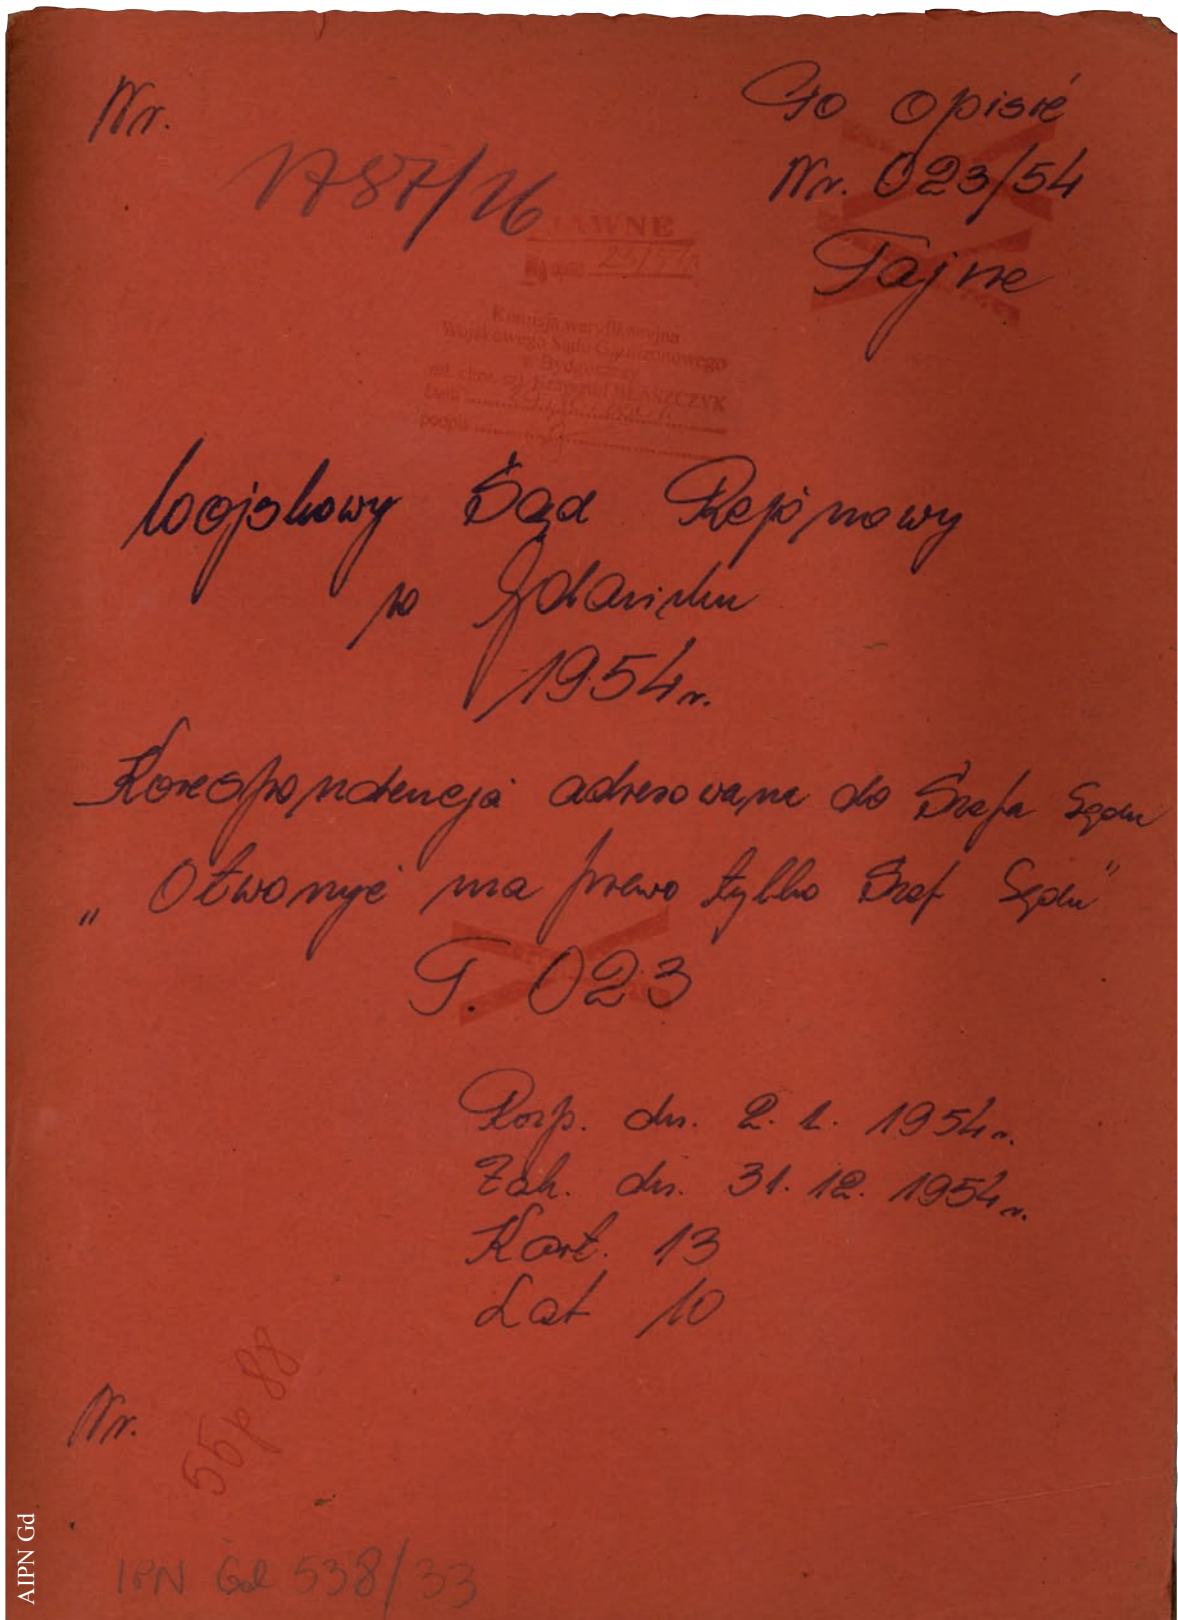 Nr.
Po opisie
Nr. 023/54
Tajne
1787/26
JAWNE
Komisja weryfikacyjna
Wojskowego Sądu Garnizonowego
w Bydgoszczy
BŁASZCZYK
Dnia
podpis
Wojskowy Sąd Rejonowy
w Gdańsku
1954r.
Korespondencja adresowana do Szefa Sądu
„Otworzyć ma prawo tylko Szef Sądu"
T. 023
Rozp. dn. 2. 1. 1954r.
Zak. dn. 31. 12. 1954r.
Kart. 13
Lat 10
Nr.
IPN Gd 538/33
AIPN Gd